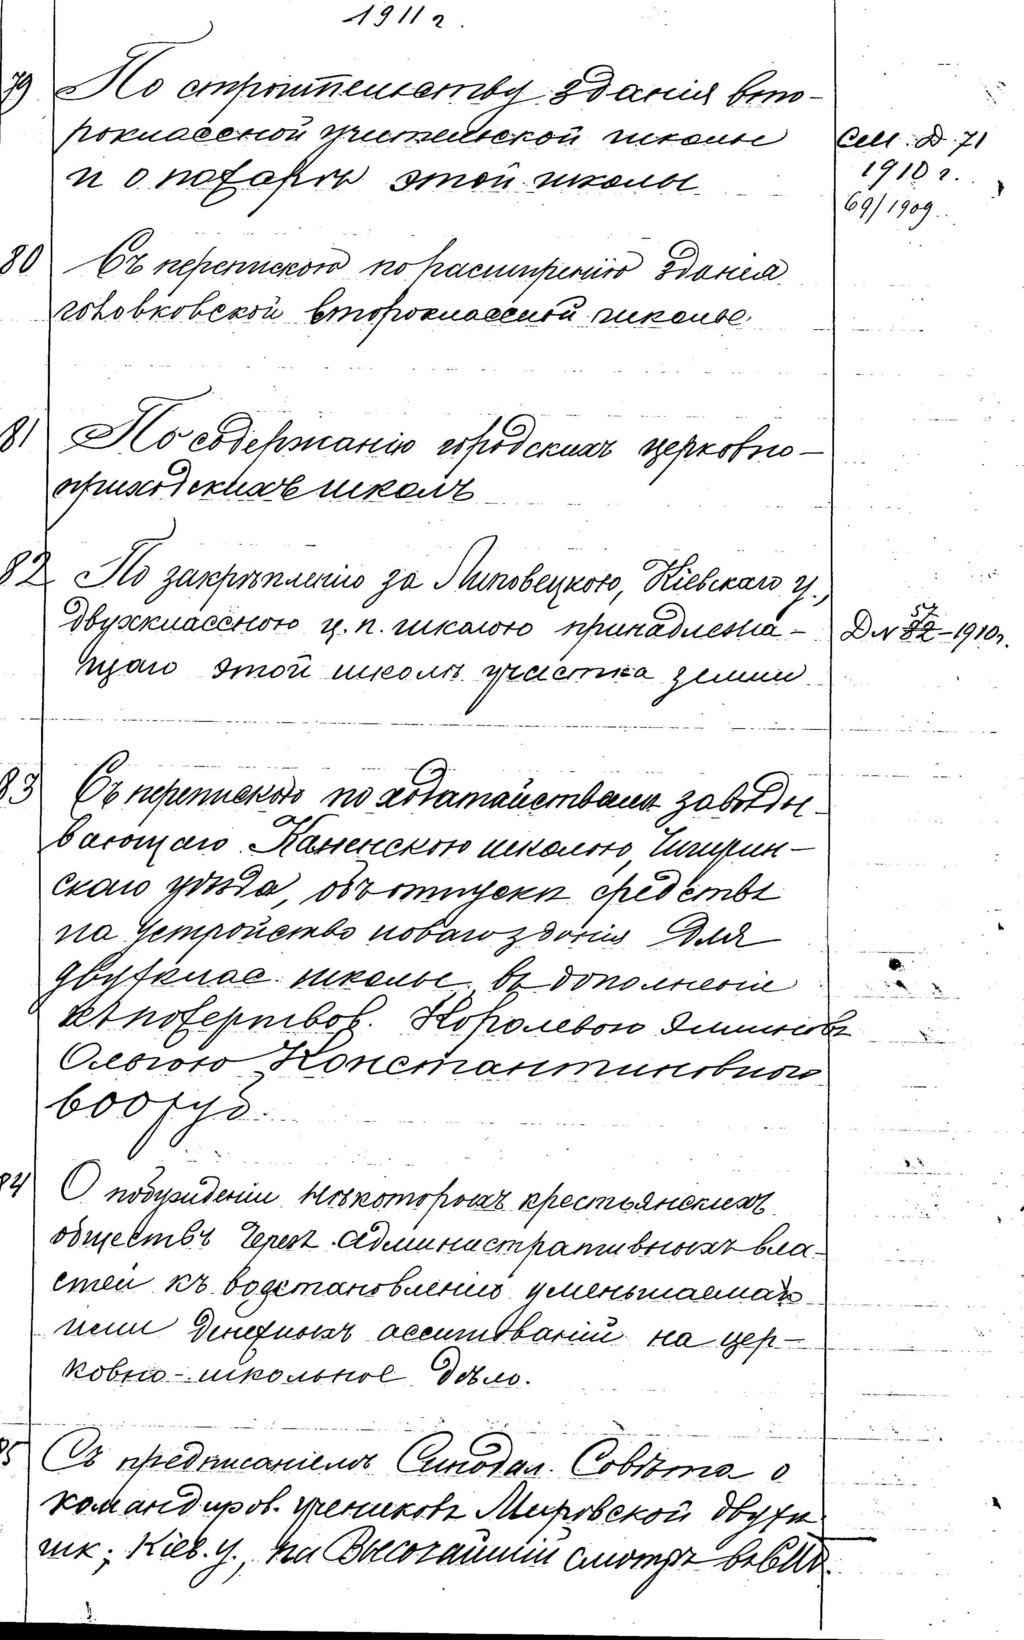 1911 г.
79 По строительству зданія вто-
роклассной учительской школы
и о пожарѣ этой школы
См. Д. 71
1910 г.
69/1909
80 Съ перепискою по расширенію зданія
головковской второклассной школы.
81 По содержанію городскихъ церковно-
приходскихъ школъ
82 По закрѣпленію за Липовецкою, Кіевскаго у.,
двухклассною ц. п. школою принадлежа-
щаго этой школѣ участка земли
Д №
57
82-1910 г.
83 Съ перепискою по ходатайствамъ завѣды-
вающаго Каменскою школою, Чигирин-
скаго уѣзда, объ отпускѣ средствъ
на устройство новаго зданія для
двухклас. школы въ дополненіе
къ пожертвов. Королевою Эллиновъ
Ольгою Константиновною
600 руб.
84 О побужденіи нѣкоторыхъ крестьянскихъ
обществъ через административныхъ вла-
стей къ возстановленію уменьшаемыхъ
ими денежныхъ ассигнованій на цер-
ковно-школьное дѣло.
85 Съ предписаніемъ Синодал. Совѣта о
командиров. учениковъ Мировской двухк
шк; Кіев. у., на Высочайшій смотръ въ СПб.